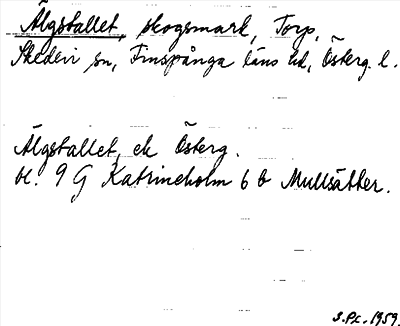 Älgstallet, skogsmark, Torp,
Skedevi sn, Finspånga läns hd, Österg. l.
Älgstallet, ek Österg.
bl. 9 G Katrineholm 6 b Mullsätter.
S.Pl. 1959.